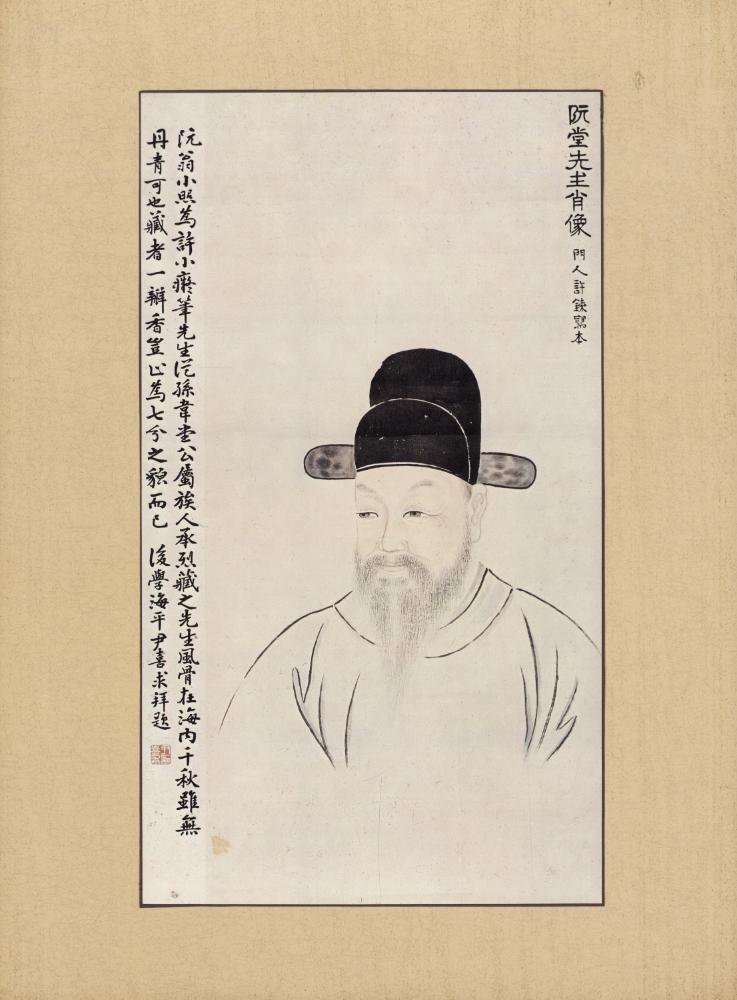 阮堂先生肖像 門人許鍊寫本
阮翁小照爲許小癡筆先生從孫韋堂公屬族人承烈藏之先生風骨在海內千秋雖無
丹靑可也藏者一瓣香豈止爲七分之貌而已 後學海平尹喜求拜題